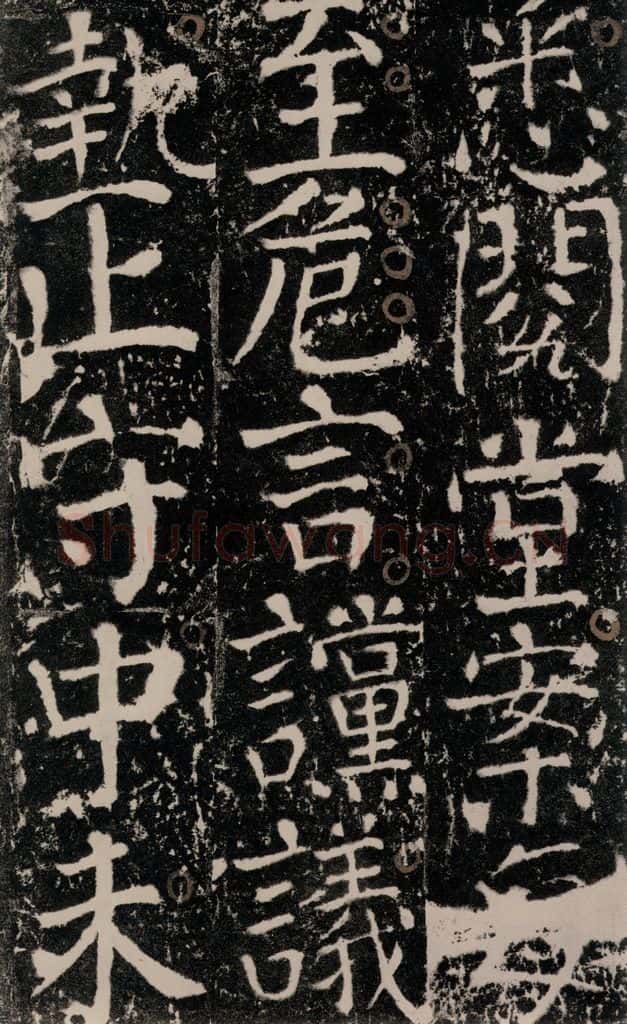 悉閱堂案每
至危言讜議
執正守中未
Shufawang.CN